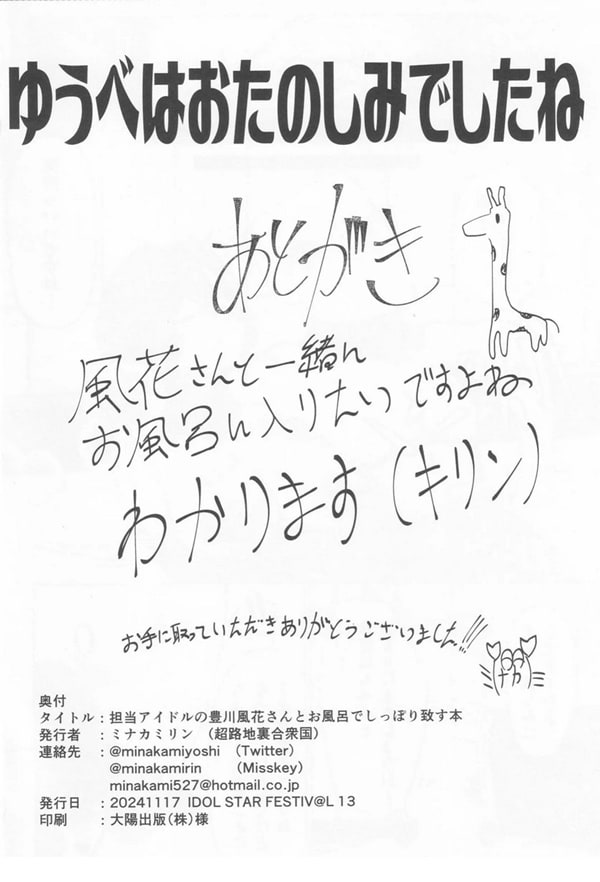 ゆうべはおたのしみでしたね
あとがき
風花さんと一緒に
お風呂に入りたいですよね
わかります(キリン)
お手に取っていただきありがとうございました!!!
ナカ
奥付
タイトル:担当アイドルの豊川風花さんとお風呂でしっぽり致す本
発行者 :ミナカミリン (超路地裏合衆国)
連絡先 :@minakamiyoshi (Twitter)
@minakamirin (Misskey)
minakami527@hotmail.co.jp
発行日 :20241117 IDOL STAR FESTIV@L 13
印刷 :大陽出版(株)様